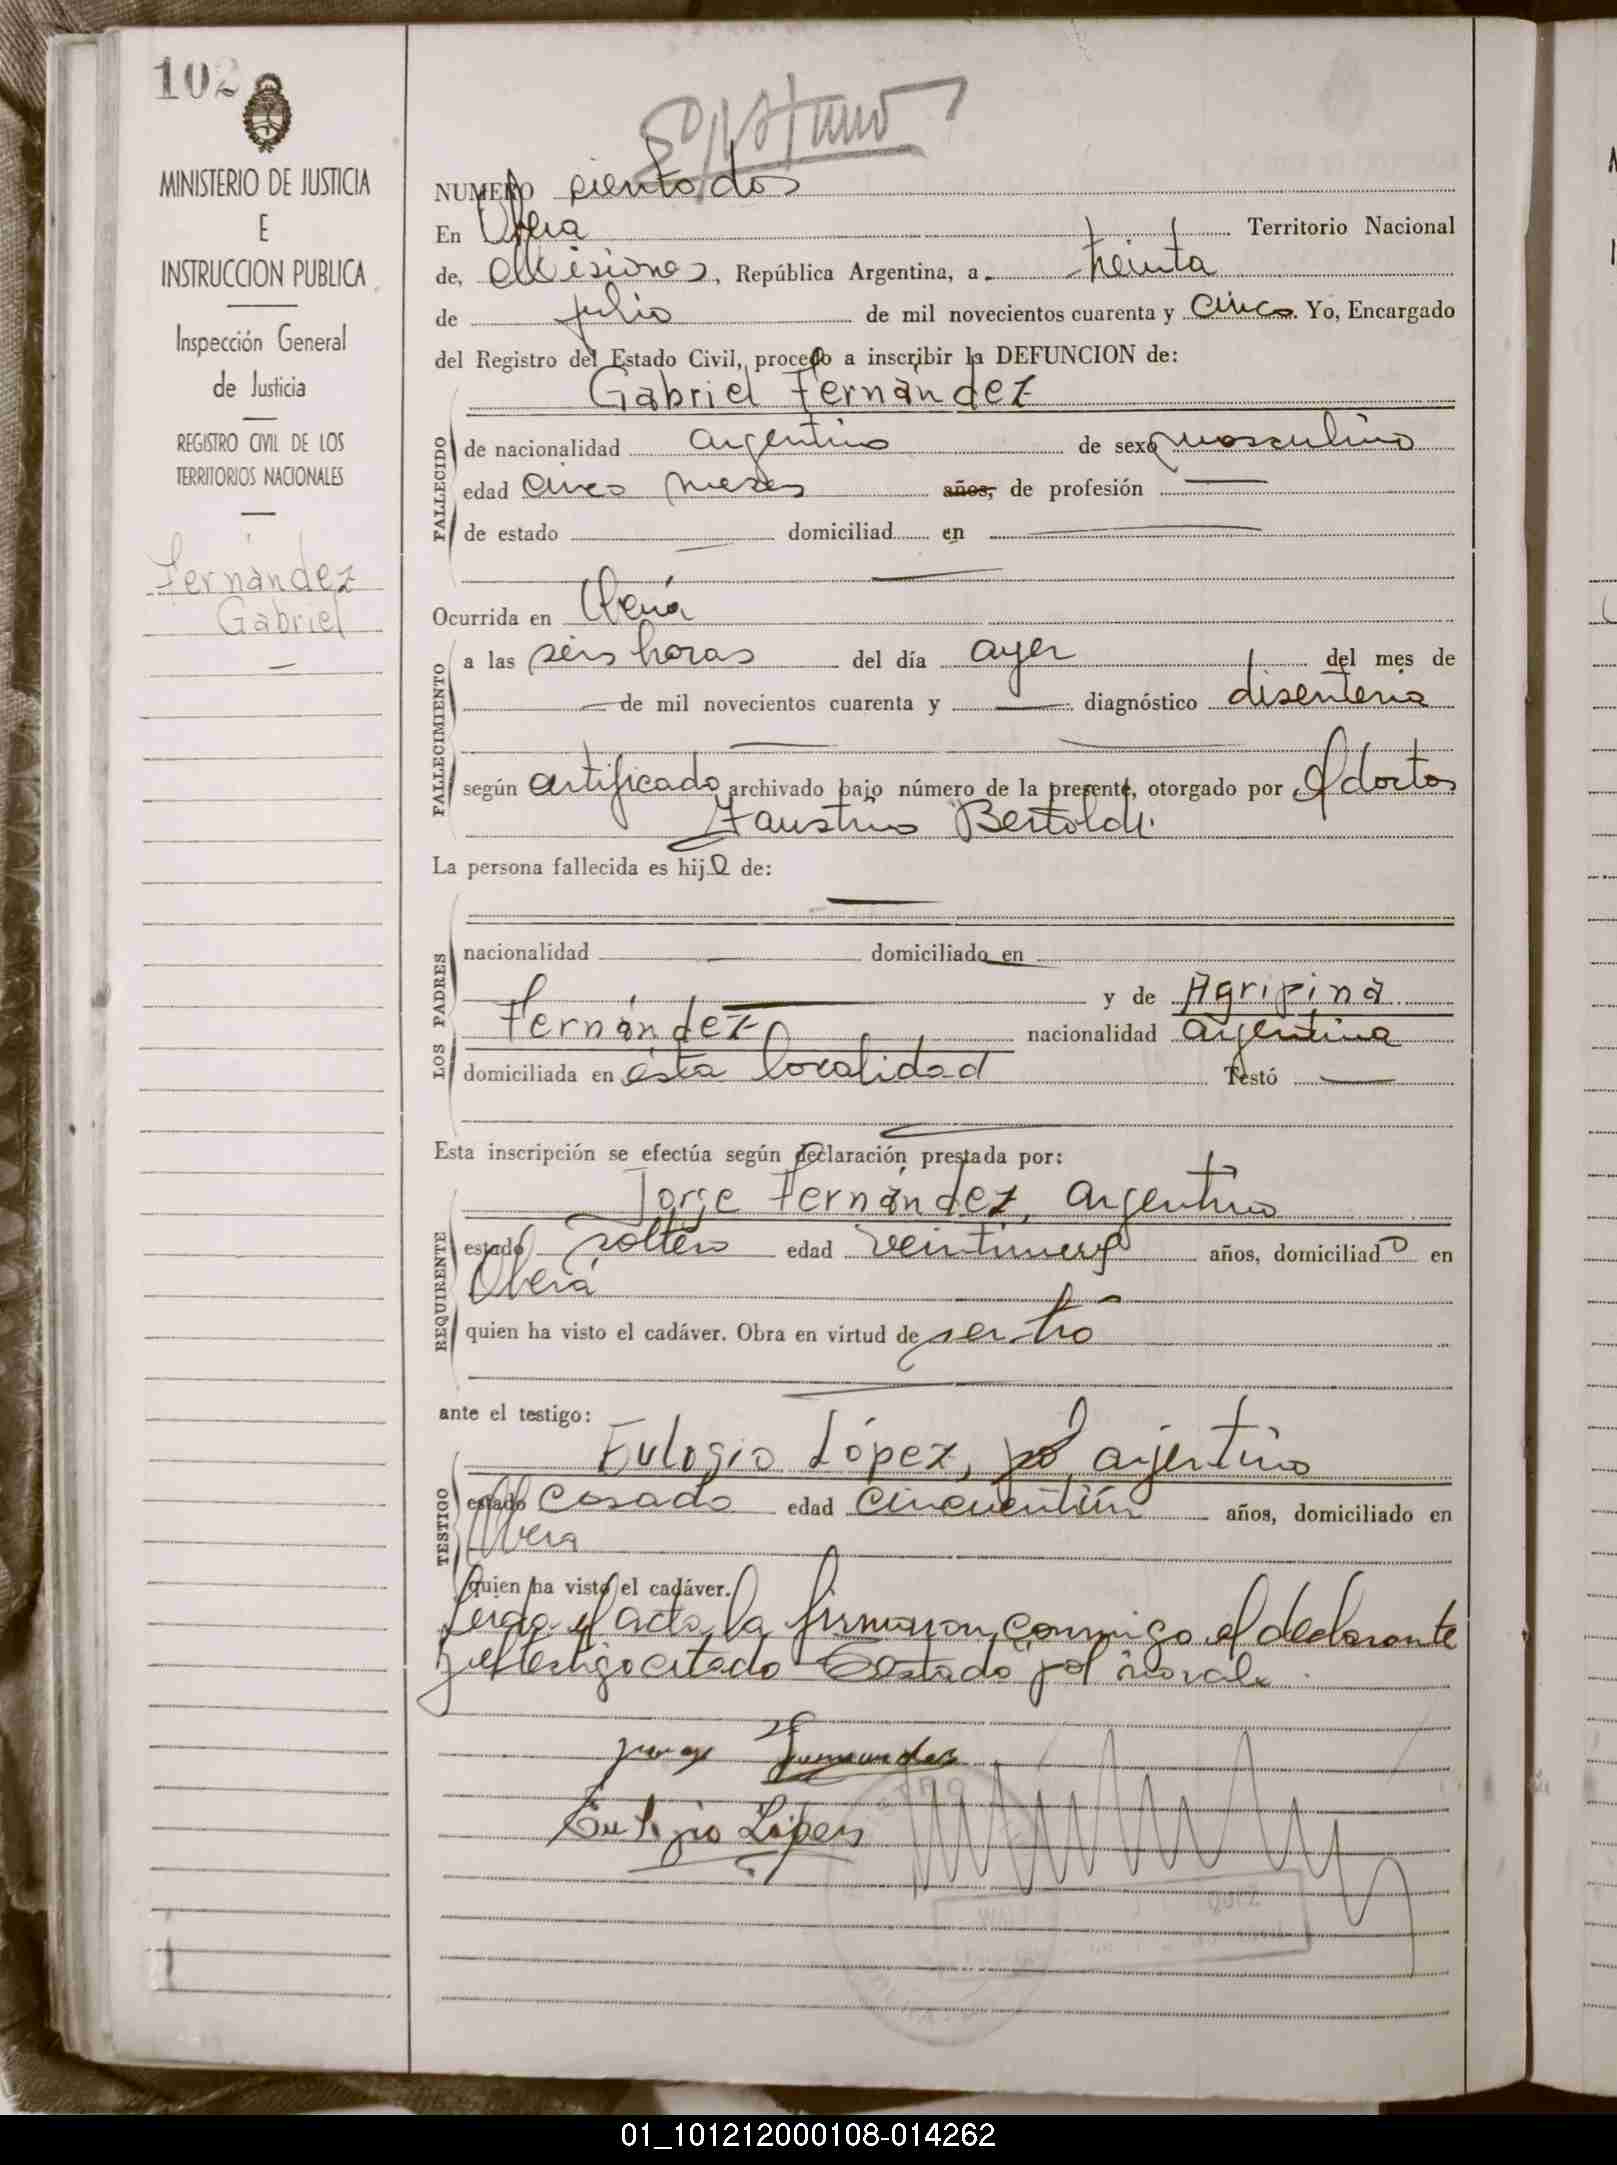 102
MINISTERIO DE JUSTICIA
E
INSTRUCCION PUBLICA
Inspección General
de Justicia
REGISTRO CIVIL DE LOS
TERRITORIOS NACIONALES
Fernández
Gabriel
NUMERO ciento dos
En Oberá Territorio Nacional
de, Misiones, República Argentina, a treinta
de julio de mil novecientos cuarenta y cinco. Yo, Encargado
del Registro del Estado Civil, procedo a inscribir la DEFUNCION de:
Gabriel Fernández
FALLECIDO
de nacionalidad argentino de sexo masculino
edad cinco meses años, de profesión —
de estado — domiciliad en —
Ocurrida en Oberá
FALLECIMIENTO
a las seis horas del día ayer del mes de
— de mil novecientos cuarenta y — diagnóstico disenteria
según certificado archivado bajo número de la presente, otorgado por el doctor
Faustino Bertoldi.
La persona fallecida es hijo de:
LOS PADRES
nacionalidad — domiciliado en —
y de Agripina
Fernández nacionalidad argentina
domiciliada en esta localidad Testó —
Esta inscripción se efectúa según declaración prestada por:
REQUIRENTE
Jorge Fernández, argentino
estado soltero edad veintinueve años, domiciliado en
Oberá
quien ha visto el cadáver. Obra en virtud de ser tío
ante el testigo:
TESTIGO
Eulogio López, argentino
estado casado edad cincuentiún años, domiciliado en
Oberá
quien ha visto el cadáver.
Leida el acta, la firmaron conmigo el declarante
y el testigo citado Testado no vale
Jorge Fernandez
Eulogio López
01_101212000108-014262